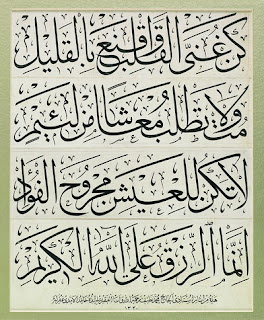 كن غني القلب واقنع بالقليل
مت ولا تطلب معاشا من لئيم
لا تكن للعيش مجروح الفؤاد
إنما الرزق على الله الكريم
١٣٢٠